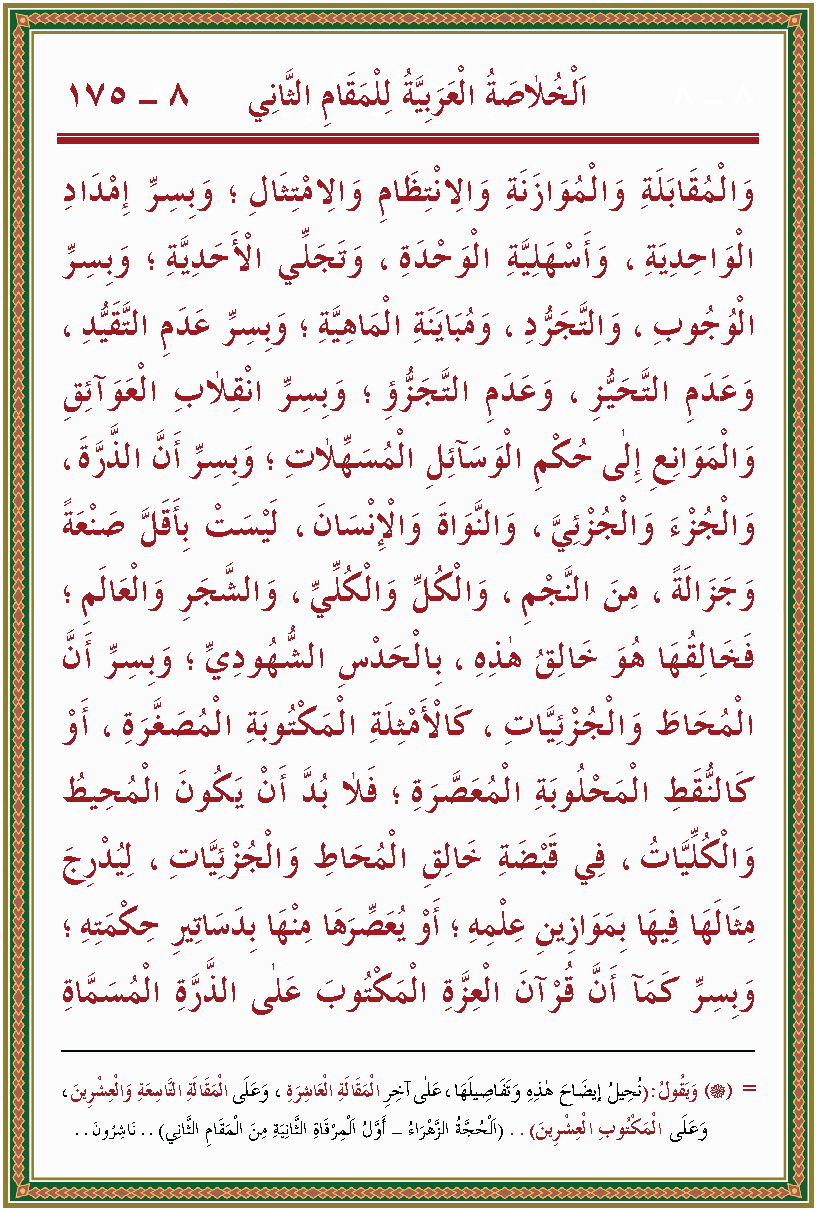 اَلْخُلاٰصَةُ الْعَرَبِيَّةُ لِلْمَقَامِ الثَّانِي ٨ ـ ١٧٥
وَالْمُقَابَلَةِ وَالْمُوَازَنَةِ وَالِانْتِظَامِ وَالِامْتِثَالِ ؛ وَبِسِرِّ إِمْدَادِ
الْوَاحِدِيَةِ ، وَأَسْهَلِيَّةِ الْوَحْدَةِ ، وَتَجَلِّي الْأَحَدِيَّةِ ؛ وَبِسِرِّ
الْوُجُوبِ ، وَالتَّجَرُّدِ ، وَمُبَايَنَةِ الْمَاهِيَّةِ ؛ وَبِسِرِّ عَدَمِ التَّقَيُّدِ ،
وَعَدَمِ التَّحَيُّزِ ، وَعَدَمِ التَّجَزُّؤِ ؛ وَبِسِرِّ انْقِلاٰبِ الْعَوَآئِقِ
وَالْمَوَانِعِ إِلٰى حُكْمِ الْوَسَآئِلِ الْمُسَهِّلاٰتِ ؛ وَبِسِرِّ أَنَّ الذَّرَّةَ ،
وَالْجُزْءَ وَالْجُزْئِيَّ ، وَالنَّوَاةَ وَالْإِنْسَانَ ، لَيْسَتْ بِأَقَلَّ صَنْعَةً
وَجَزَالَةً ، مِنَ النَّجْمِ ، وَالْكُلِّ وَالْكُلِّيِّ ، وَالشَّجَرِ وَالْعَالَمِ ؛
فَخَالِقُهَا هُوَ خَالِقُ هٰذِهِ ، بِالْحَدْسِ الشُّهُودِيِّ ؛ وَبِسِرِّ أَنَّ
الْمُحَاطَ وَالْجُزْئِيَّاتِ ، كَالْأَمْثِلَةِ الْمَكْتُوبَةِ الْمُصَغَّرَةِ ، أَوْ
كَالنُّقَطِ الْمَحْلُوبَةِ الْمُعَصَّرَةِ ؛ فَلاٰ بُدَّ أَنْ يَكُونَ الْمُحِيطُ
وَالْكُلِّيَّاتُ ، فِي قَبْضَةِ خَالِقِ الْمُحَاطِ وَالْجُزْئِيَّاتِ ، لِيُدْرِجَ
مِثَالَهَا فِيهَا بِمَوَازِينِ عِلْمِهِ ؛ أَوْ يُعَصِّرَهَا مِنْهَا بِدَسَاتِيرِ حِكْمَتِهِ ؛
وَبِسِرِّ كَمَآ أَنَّ قُرْآنَ الْعِزَّةِ الْمَكْتُوبَ عَلٰى الذَّرَّةِ الْمُسَمَّاةِ
= (۞) وَيَقُولُ:(نُحِيلُ إِيضَاحَ هٰذِهِ وَتَفَاصِيلَهَا ، عَلٰى آخِرِ الْمَقَالَةِ الْعَاشِرَةِ ، وَعَلَى الْمَقَالَةِ الثَّانِيَةِ وَالْعِشْرِينَ ،
وَعَلَى الْمَكْتُوبِ الْعِشْرِينَ) . . (اَلْحُجَّةُ الزَّهْرَاءُ ـ أَوَّلُ الْمِرْقَاةِ الثَّانِيَةِ مِنَ الْمَقَامِ الثَّانِي) . . نَاشِرُونَ . .